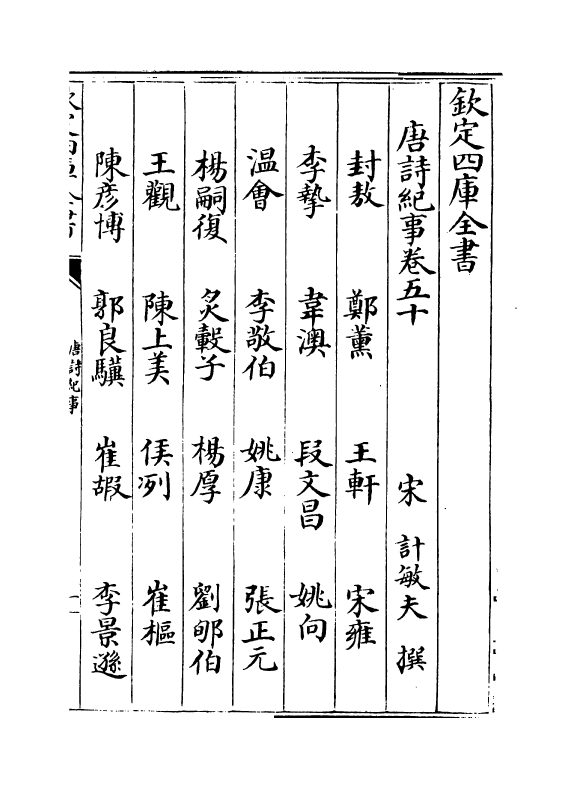 欽定四庫全書
唐詩紀事卷五十 宋 計敏夫 撰
封敖 鄭薰 王軒 宋雍
李摯 韋澳 段文昌 姚向
温會 李敬伯 姚康 張正元
楊嗣復 炙轂子 楊厚 劉郇伯
王觀 陳上美 侯冽 崔樞
陳彦博 郭良驥 崔嘏 李景遜
欽定四庫全書
唐詩紀事
一